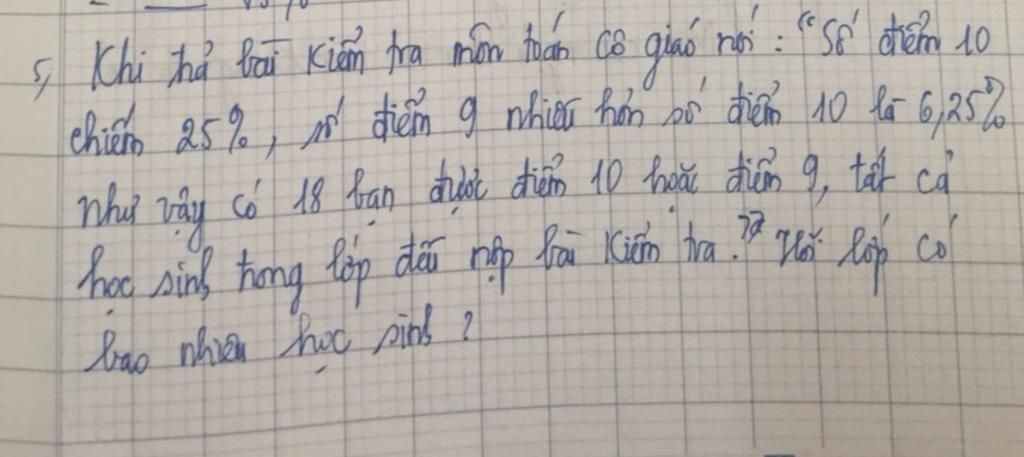 5, Khi trả bài kiểm tra môn toán cô giáo nói : "Số điểm 10
chiếm 25%, số điểm 9 nhiều hơn số điểm 10 là 6,25%
như vậy có 18 bạn được điểm 10 hoặc điểm 9, tất cả
học sinh trong lớp đều nộp bài kiểm tra." Hỏi lớp có
bao nhiêu học sinh ?